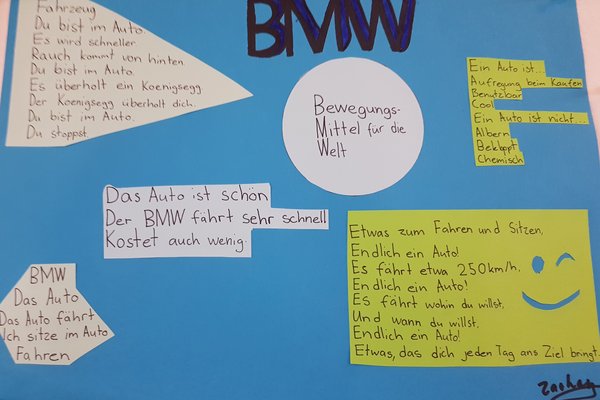 BMW
Fahrzeug
Du bist im Auto
Es wird schneller.
Rauch kommt von hinten.
Du bist im Auto.
Es überholt ein Koenigsegg
Der Koenigsegg überholt dich.
Du bist im Auto.
Du stoppst.
Bewegungs-
Mittel für die
Welt
Ein Auto ist...
Aufregung beim Kaufen
Benutzbar
Cool
Ein Auto ist nicht...
Albern
Bekloppt
Chemisch
Das Auto ist schön
Der BMW fährt sehr schnell
Kostet auch wenig.
Etwas zum Fahren und Sitzen,
Endlich ein Auto!
Es fährt etwa 250km/h,
Endlich ein Auto!
Es fährt wohin du willst,
Und wann du willst,
Endlich ein Auto!
Etwas, das dich jeden Tag ans Ziel bringt.
BMW
Das Auto
Das Auto fährt
Ich sitze im Auto
Fahren